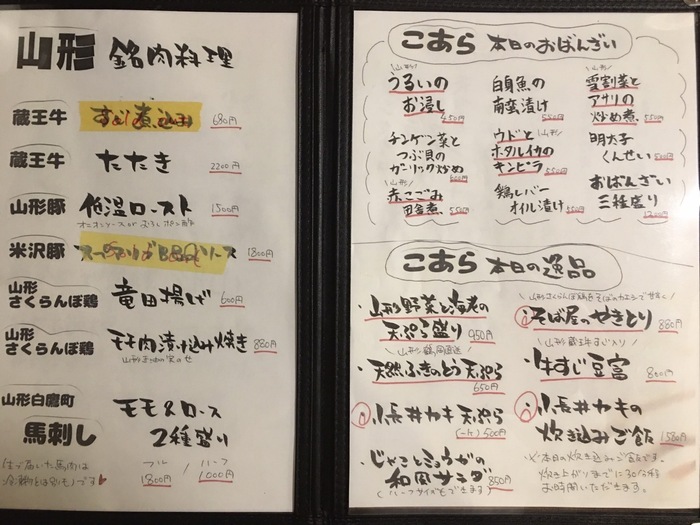 山形 銘肉料理
蔵王牛 すじ煮込み 680円
蔵王牛 たたき 2200円
山形豚 低温ロースト 1500円
オニオンソース or おろしポン酢
米沢豚 1800円
山形
さくらんぼ鶏 竜田揚げ 600円
山形
さくらんぼ鶏 モモ肉漬け込み焼き 880円
山形白鷹町
馬刺し
モモ&ロース
2種盛り
フル 1800円 / ハーフ 1000円
こあら 本日のおばんざい
山形
うるいの
お浸し 450円
白身魚の
南蛮漬け 580円
山形
雪割菜と
アサリの
炒め煮 550円
チンゲン菜と
つぶ貝の
ガーリック炒め 600円
ウドと 山形
ホタルイカの
キンピラ 550円
明太子
くんせい 500円
山形
赤こごみ
田舎煮 550円
鶏レバー
オイル漬け 550円
おばんざい
三種盛り 1200円
こあら 本日の逸品
・山形野菜と海老の
天ぷら盛り 950円
山形鶴岡直送
・天然ふきのとう天ぷら
650円
・小長井カキ天ぷら
(一ヶ) 500円
・じゃことミョウガの
和風サラダ 850円
(ハーフサイズもできます)
山形さくらんぼ鶏をそばのカエシで甘辛く
・そば屋のやきとり 880円
山形蔵王牛すじ入り
・牛すじ豆富 800円
・小長井カキの
炊き込みご飯 1580円
※本日の炊き込みご飯です。
炊き上がりまでに30分程
お時間いただきます。